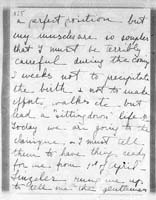 a perfect position but
my muscles are so souples
that I must be terribly
carreful during the long
3 weeks not to precipitate
the birth & not to make
efforts, walks etc but
lead a sitting down life
Today we are going to the
I must tell
them to have they ready
for me from 1st of April
rung me up
to tell me the gentleman